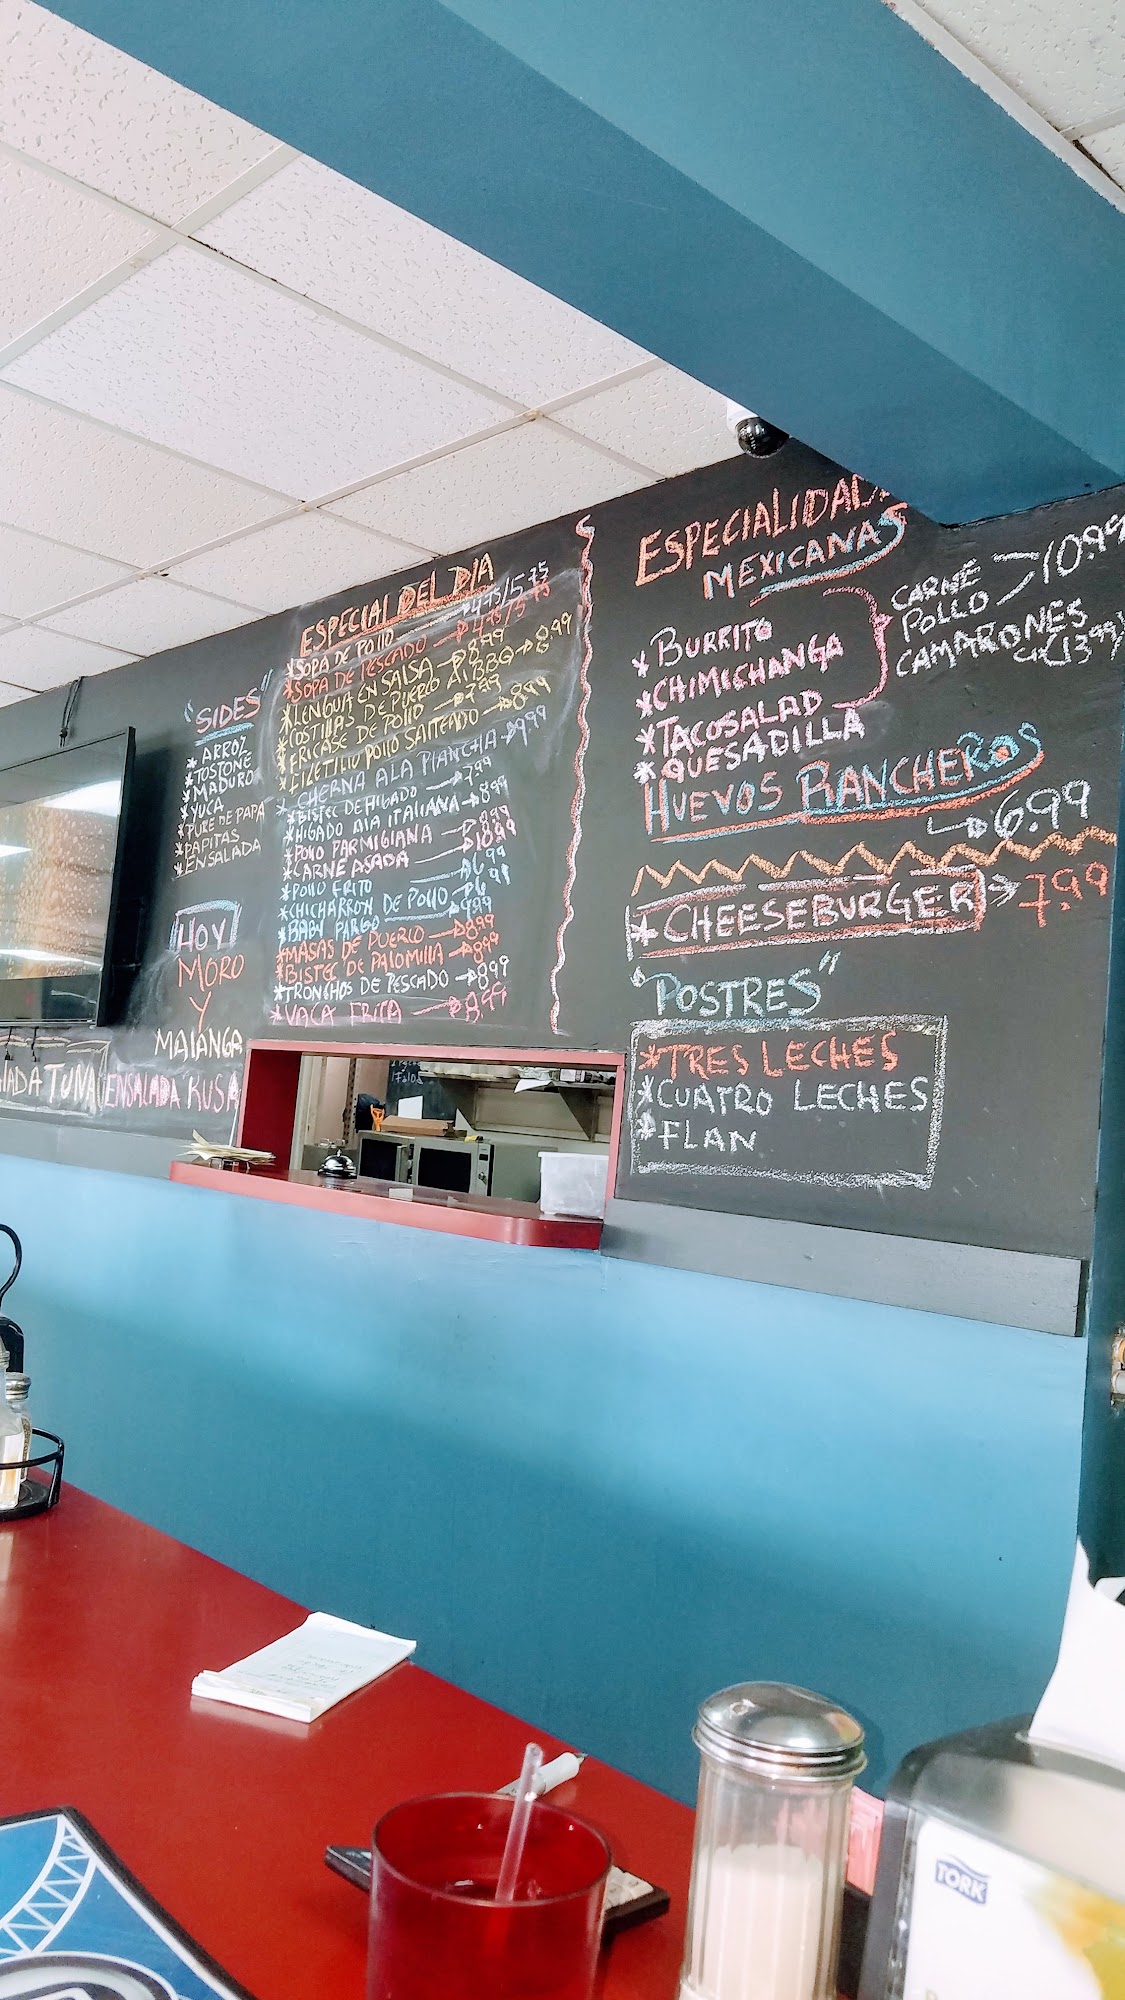 "SIDES"
* ARROZ
* TOSTONE
* MADURO
* YUCA
* PURE DE PAPA
* PAPITAS
* ENSALADA
HOY
MORO
Y
MALANGA
TUNA
ENSALADA RUSA
ESPECIAL DEL DIA
* SOPA DE POLLO → 4.75/5.75
* SOPA DE PESCADO → 4.75/5.75
* LENGUA EN SALSA → 8.99
* COSTILLAS DE PUERCO AL BBQ → 8.99
* FRICASE DE POLLO → 7.99
* FILETILLO POLLO SALTEADO → 8.99
* CHERNA A LA PLANCHA → 9.99
* BISTEC DE HIGADO → 7.99
* HIGADO A LA ITALIANA → 8.99
* POLLO PARMIGIANA → 8.99
* CARNE ASADA → 8.99
* POLLO FRITO
* CHICHARRON DE POLLO
* BABY PARGO
* MASAS DE PUERCO → 8.99
* BISTEC DE PALOMILLA → 8.99
* TRONCHOS DE PESCADO → 8.99
* VACA FRITA → 8.99
ESPECIALIDADES
MEXICANAS
* BURRITO
* CHIMICHANGA
* TACOSALAD
* QUESADILLA
CARNE
POLLO
10.99
CAMARONES
13.99
HUEVOS RANCHEROS
→ 6.99
* CHEESEBURGER → 7.99
"POSTRES"
* TRES LECHES
* CUATRO LECHES
* FLAN
TORK